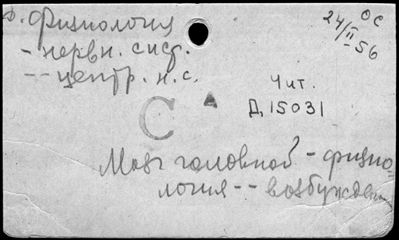 Физиология
- нервн. сист.
-- центр. н. с.
ОС
24/II-56
Чит.
Д15031
С
Мозг головной - физио-
логия -- возбужден